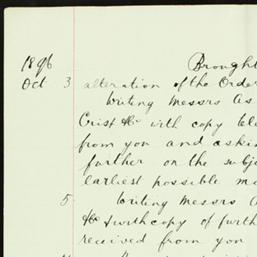 1896 Brought
Oct 3 alteration of the Order
Writing Messrs As
Crisp & Co with copy tele
from you and aski
further on the subj
earliest possible mo
5 Writing Messrs A
& Co with copy of furth
received from you